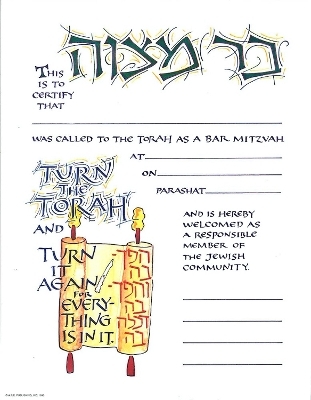 בר מצוה
THIS
IS TO
CERTIFY
THAT
WAS CALLED TO THE TORAH AS A BAR MITZVAH
AT
ON
PARASHAT
TURN
THE
TORAH
AND
TURN
IT
AGAIN
FOR
EVERY-
THING
IS IN IT.
AND IS HEREBY
WELCOMED AS
A RESPONSIBLE
MEMBER OF
THE JEWISH
COMMUNITY.